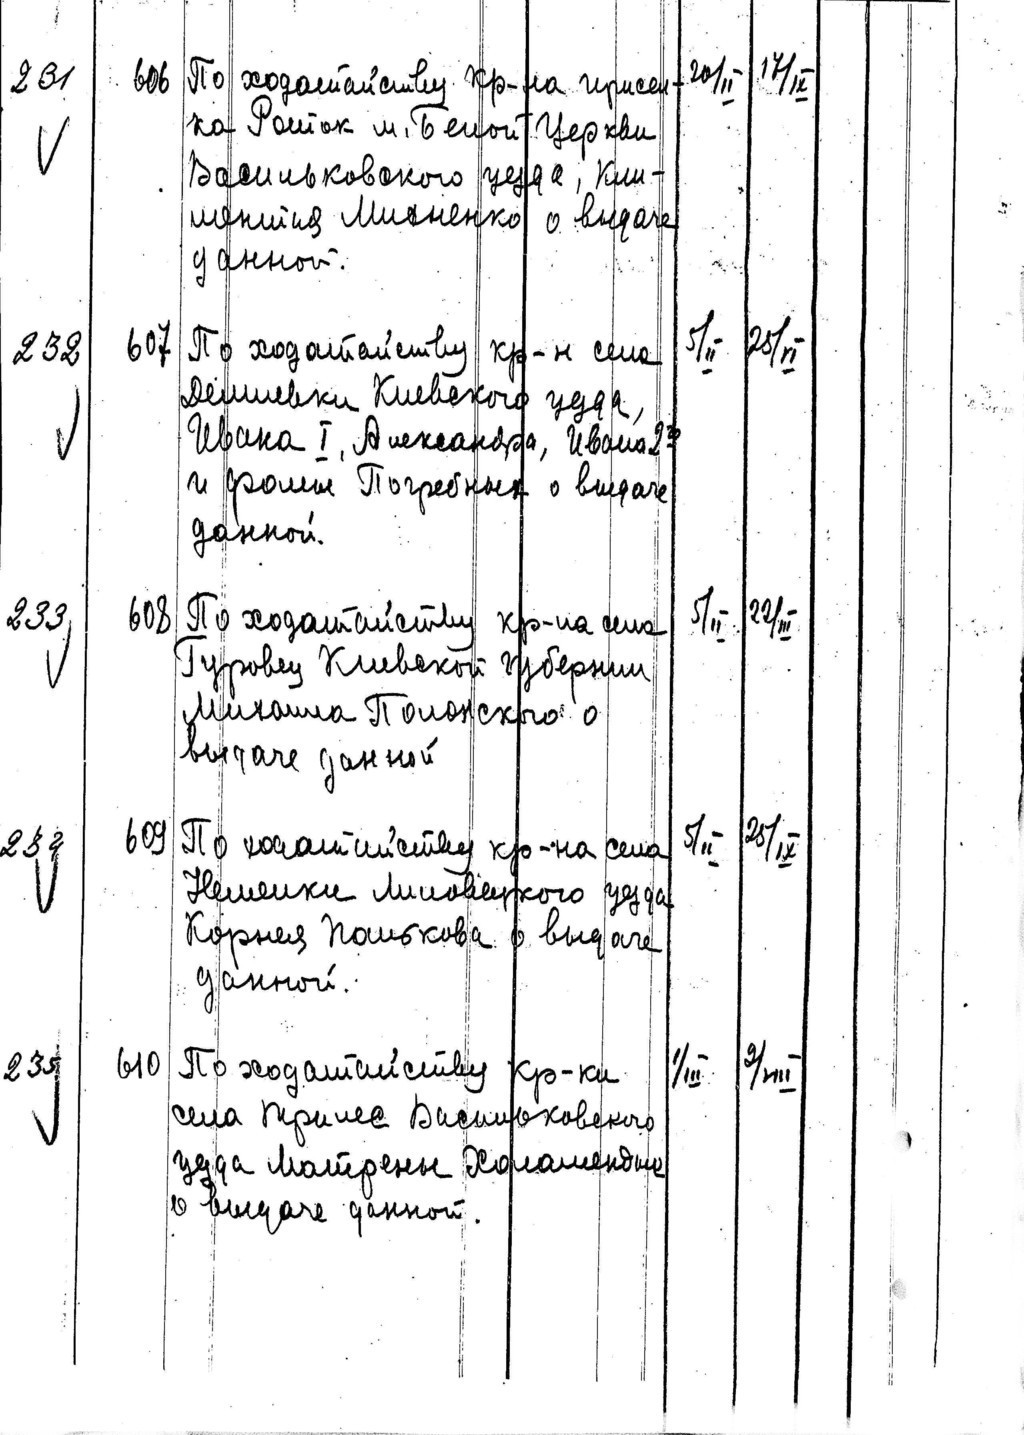 231 606 По ходатайству кр-на присел- 20/II 17/IX
ка Роток м. Белой Церкви
Васильковского уезда, Кли-
ментия Михненко о выдаче
данной.
232 607 По ходатайству кр-н села 5/II 25/VI
Демиевки Киевского уезда,
Ивана I, Александра, Ивана 2го
и Фомы Погребных о выдаче
данной.
233 608 По ходатайству кр-на села 5/II 22/III
Гуровец Киевской губернии
Михаила Полонского о
выдаче данной
234 609 По ходатайству кр-на села 5/II 25/IX
Неменки Липовецкого уезда
Корнея Панькова о выдаче
данной.
235 610 По ходатайству кр-ки 1/III 9/VIII
села Прилес Васильковского
уезда Матрены
о выдаче данной.